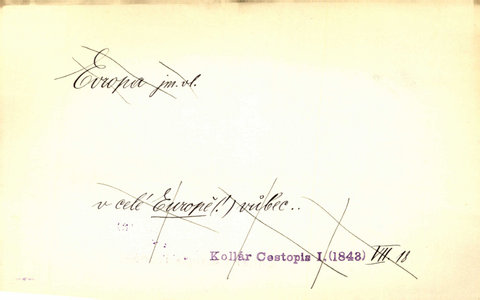 Evropa jm. vl.
v celé Europě(!) vůbec..
Kollár Cestopis I. (1843) VII 18